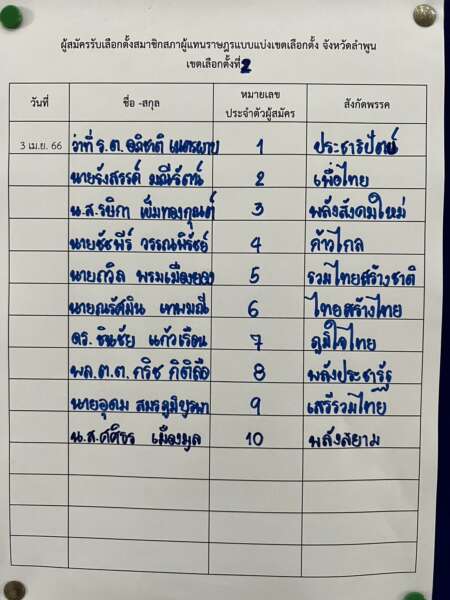 ผู้สมัครรับเลือกตั้งสมาชิกสภาผู้แทนราษฎรแบบแบ่งเขตเลือกตั้ง จังหวัดลำพูน
เขตเลือกตั้งที่ 2
วันที่ ชื่อ -สกุล หมายเลขประจำตัวผู้สมัคร สังกัดพรรค
3 เม.ย. 66 ว่าที่ ร.ต. อภิชาติ 1 ประชาธิปัตย์
นายรังสรรค์ มณีรัตน์ 2 เพื่อไทย
น.ส.รษิกา เพิ่มทองกุณต์ 3 พลังสังคมใหม่
นายชัชพีร์ วรรณพิรัชย์ 4 ก้าวไกล
นายถวิล พรมเมืองยอง 5 รวมไทยสร้างชาติ
นายณรัศมิน เทพมณี 6 ไทยสร้างไทย
ดร. ชินชัย แก้วเรือน 7 ภูมิใจไทย
พล.ต.ต. กริช กิติลือ 8 พลังประชารัฐ
นายอุดม สมรภูมิบูรพา 9 เสรีรวมไทย
น.ส.ศศิธร เมืองมูล 10 พลังสยาม